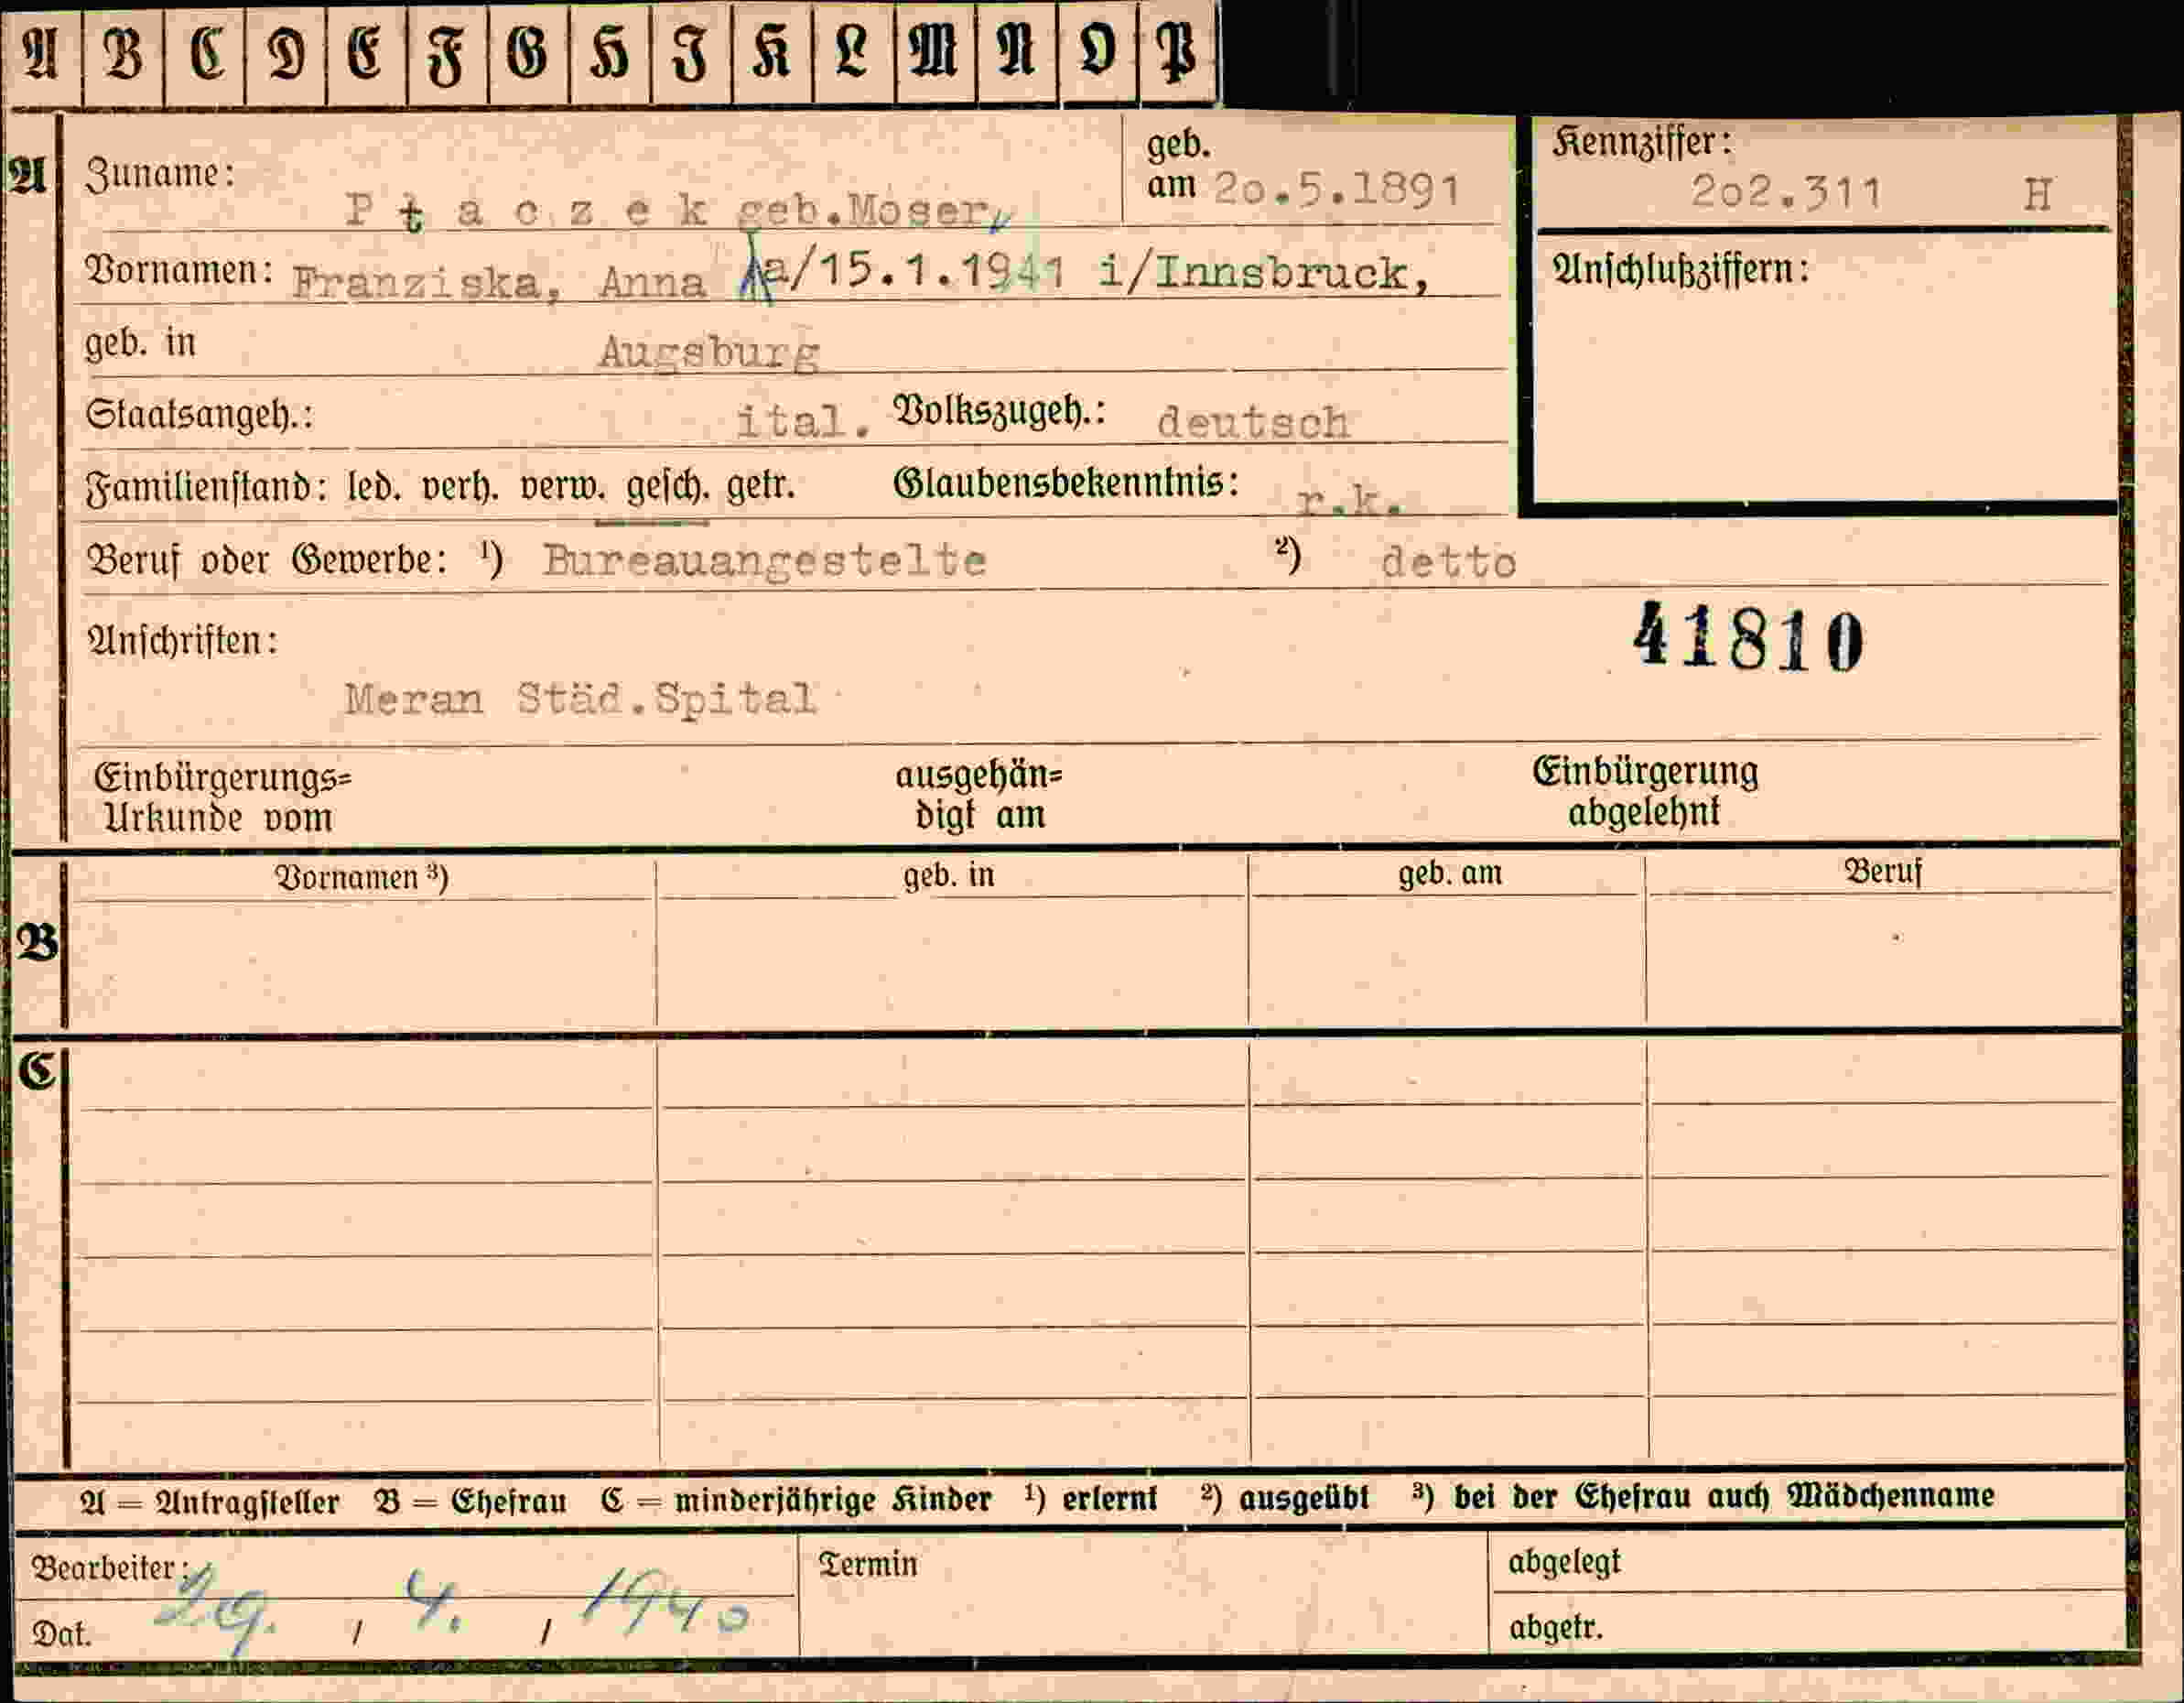 A B C D E F G H I K L M N O P
A
Zuname: Ptaczek geb.Moser,
geb. am 2o.5.1891
Kennziffer: 2o2.311 H
Vornamen: Franziska, Anna a/15.1.1941 i/Innsbruck,
Anschlußziffern:
geb. in Augsburg
Staatsangeh.: ital. Volkszugeh.: deutsch
Familienstand: led. verh. verw. gesch. getr. Glaubensbekenntnis: r.k.
Beruf oder Gewerbe: ¹) Bureauangestelte ²) detto
41810
Anschriften:
Meran Städ.Spital
Einbürgerungs= ausgehän= Einbürgerung
Urkunde vom digt am abgelehnt
B
Vornamen ³) geb. in geb. am Beruf
C
A = Antragsteller B = Ehefrau C = minderjährige Kinder ¹) erlernt ²) ausgeübt ³) bei der Ehefrau auch Mädchenname
Bearbeiter: Termin abgelegt
Dat. 29. / 4. / 1940 abgetr.